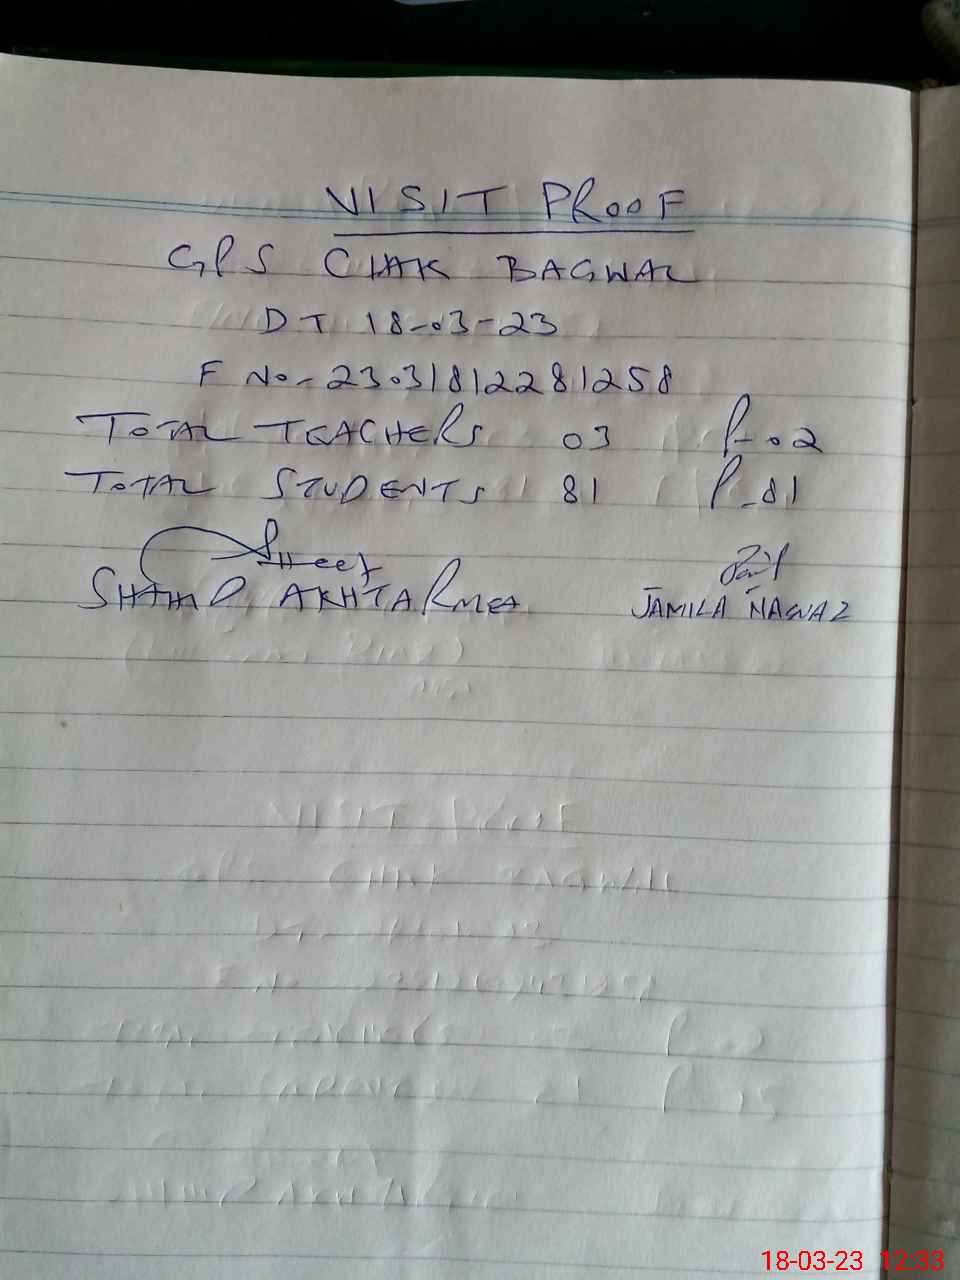 VISIT PROOF
GPS CHAK BAGWAL
DT 18-03-23
F No- 2303181228 1258
TOTAL TEACHERS 03 P-02
TOTAL STUDENTS 81 P-81
AKHTAR
JAMILA NAWAZ
18-03-23 12:33